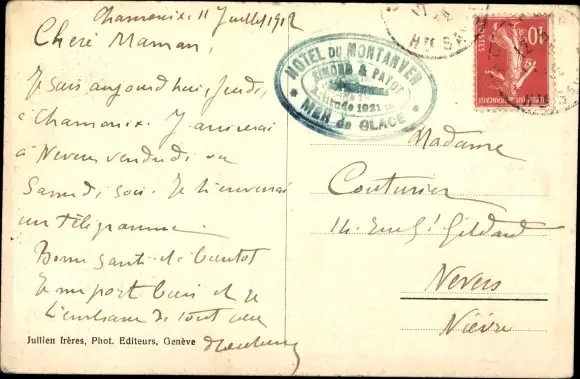 Chamonix 11 Juillet 1912
Chère Maman,
Je suis aujourd'hui, Jeudi,
à Chamonix. J'arriverai
à Nevers vendredi ou
Samedi soir. Je t'enverrai
un télégramme.
Bonne santé et à bientôt
Je me porte bien et je
t'embrasse de tout cœur
Jullien frères, Phot. Editeurs, Genève
HOTEL DU MONTANVERT
SIMOND & PAYOT
Altitude 1921 m.
* MER de GLACE *
Hte SAVOIE
10c
POSTES
Madame
Couturier
14. Rue Gildard
Nevers
Nièvre